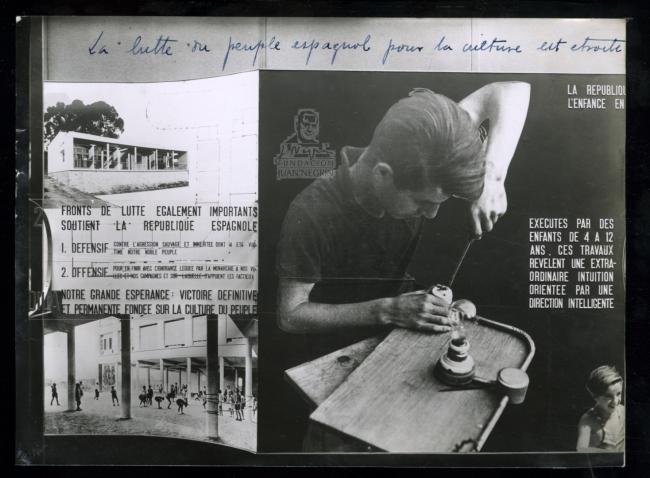 La lutte du peuple espagnol pour la culture est etroite
FRONTS DE LUTTE EGALEMENT IMPORTANTS
SOUTIENT LA REPUBLIQUE ESPAGNOLE
1. DEFENSIF CONTRE L'AGRESSION SAUVAGE ET DONT A ETE VIC-
TIME NOTRE NOBLE PEUPLE
2. OFFENSIF POUR EN FINIR AVEC L'IGNORANCE LEGUEE PAR LA MONARCHIE A NOS
ET NOS CAMPAGNES ET SUR LAQUELLE S'APPUIENT LES
NOTRE GRANDE ESPERANCE: VICTOIRE DEFINITIVE
ET PERMANENTE FONDEE SUR LA CULTURE DU PEUPLE
FUNDACIÓN
JUAN NEGRÍN
LA REPUBLIQU
L'ENFANCE EN
EXECUTES PAR DES
ENFANTS DE 4 A 12
ANS, CES TRAVAUX
REVELENT UNE EXTRA-
ORDINAIRE INTUITION
ORIENTEE PAR UNE
DIRECTION INTELLIGENTE